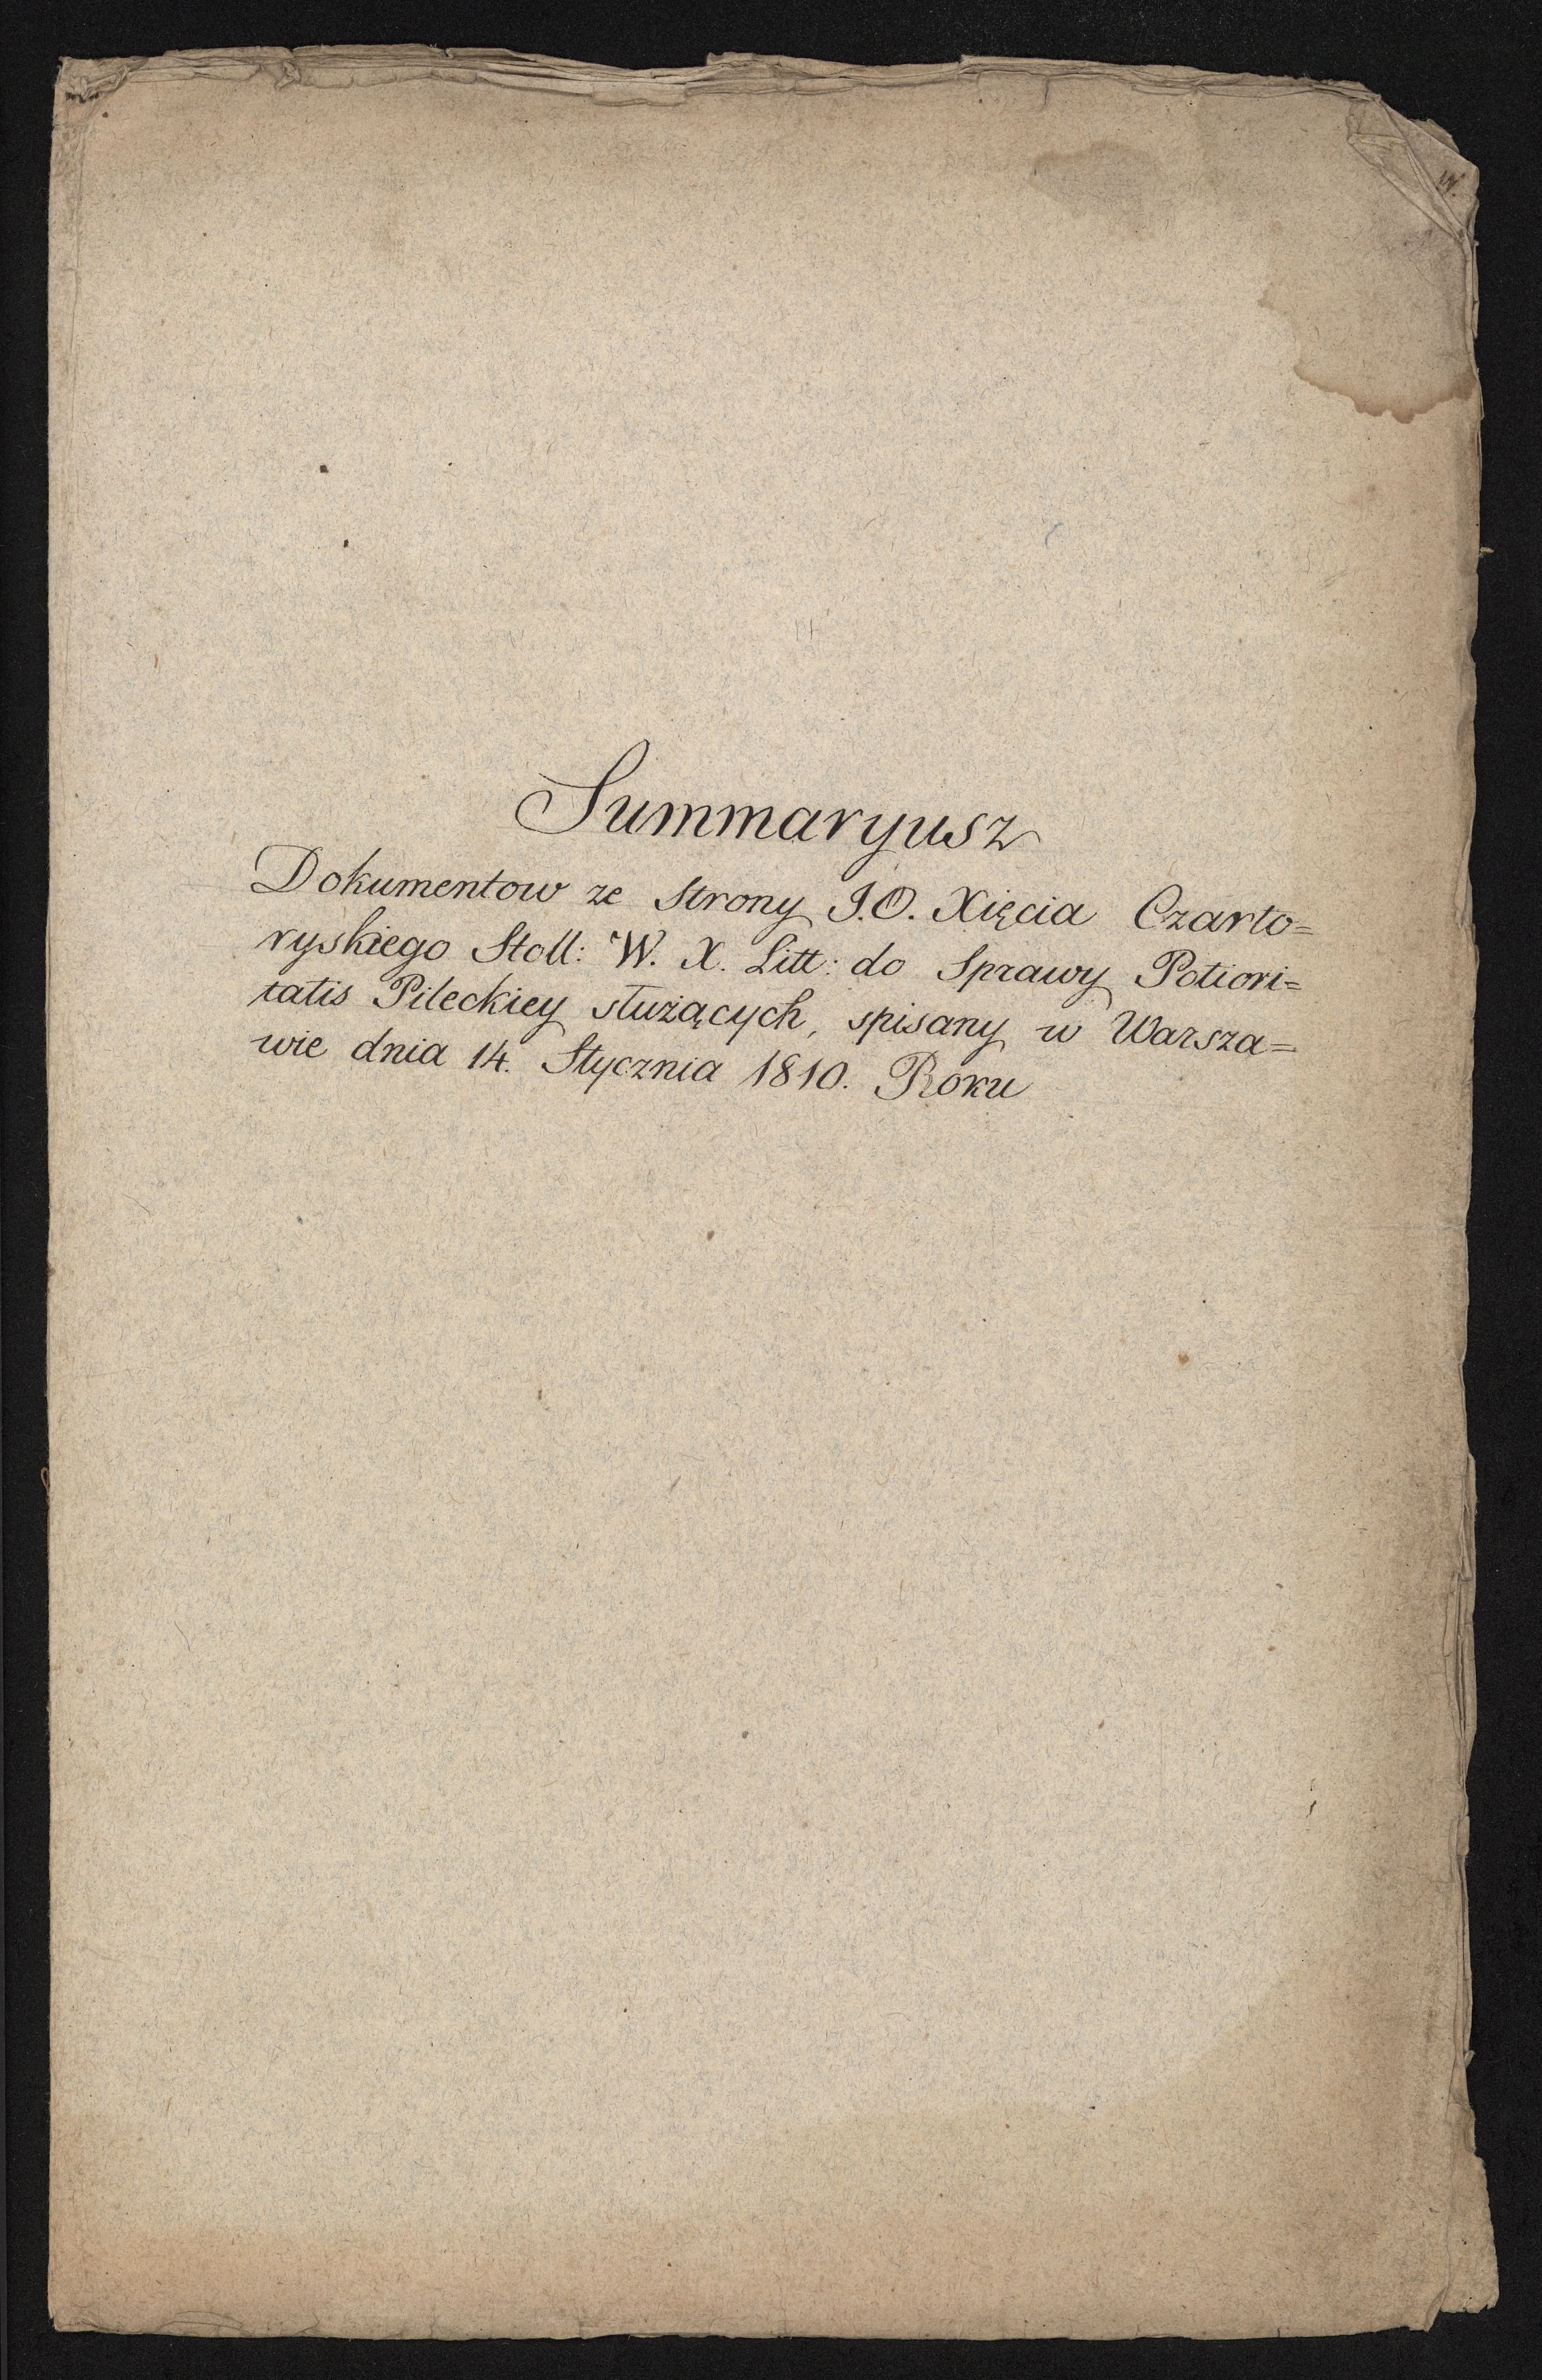 Summaryusz
Dokumentow ze Strony J.O. Xięcia Czarto=
ryskiego Stoll: W. X. Litt: do Sprawy Potiori=
tatis Pileckiey służących, spisany w Warsza=
wie dnia 14. Stycznia 1810. Roku